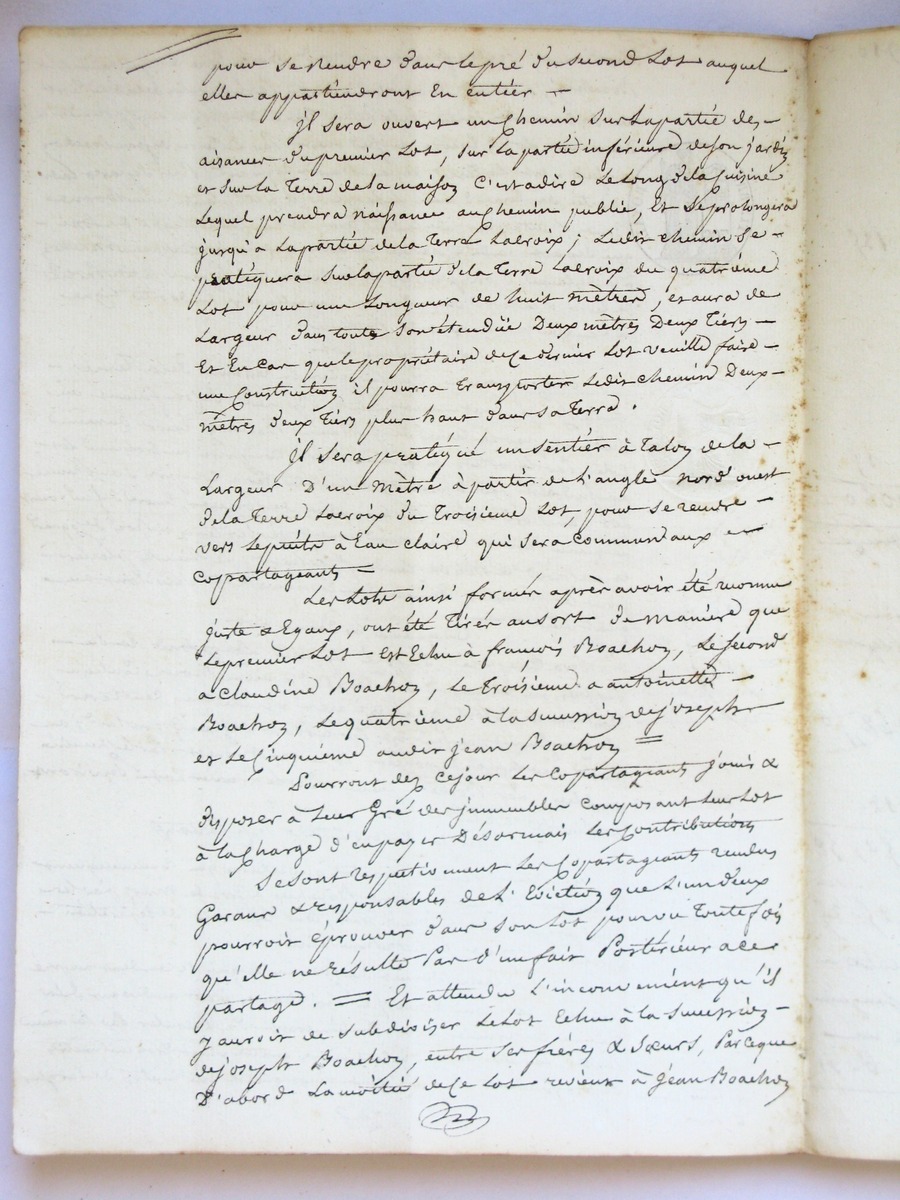 pour se rendre dans le pré du second Lot auquel
elles appartiendront En entier —
Il sera ouvert un chemin sur la partie des —
aisances du premier Lot, sur la partie inférieure de son jardin
et sur la Terre de la maison c'est a dire Le Long de la Cuisine
Lequel prendra naissance au chemin public, Et se prolongera
jusqu'a La partie de la Terre Lacroix ; Ledit chemin se —
pratiquera sur la partie de la Terre Lacroix du quatrième
Lot pour une Longueur de huit mètres, et aura de
Largeur dans toute son étendüe Deux mètres Deux Tiers —
Et En Cas que le propriétaire de Ce dernier Lot veuille faire —
une Construction il pourra Transporter Ledit chemin Deux —
mètres deux Tiers plus haut dans sa Terre .
Il sera pratiqué un sentier à Talon de la —
Largeur D'un Mètre à partir de L'angle Nord ouest
de la Terre Lacroix du Troisieme Lot, pour se rendre —
vers à Eau claire qui sera Commun aux —
Copartageants =
Les Lots ainsi formés après avoir été reconnu
juste & Egaux, ont été Tirés au sort de manière que
Le premier Lot est Echu à francois Boachon, Le second
a Claudine Boachon, Le troisieme a antoinette —
Boachon, Le quatrieme à la Succession de joseph
et Le Cinquieme audit jean Boachon =
Pourront dez Ce jour Les Copartageants jouir &
disposer à Leur Gré des jmmeubles Composant Leur Lot
à la Charge d'en payer Désormais Les Contributions
Se sont respectivement Les Copartageants rendus
Garans & responsables de L'Eviction que L'un d'eux
pourroit éprouver dans son Lot pourvu Toutefois
qu'elle ne résulte Pas d'un fait Postérieur a ces
partage . = Et attendu L'inconvenient qu'il
y auroit de subdiviser Le Lot Echu à la Succession —
de joseph Boachon, entre ses frères & Sœurs, Parceque
D'abord La moitié de Ce Lot revient à Jean Boachon